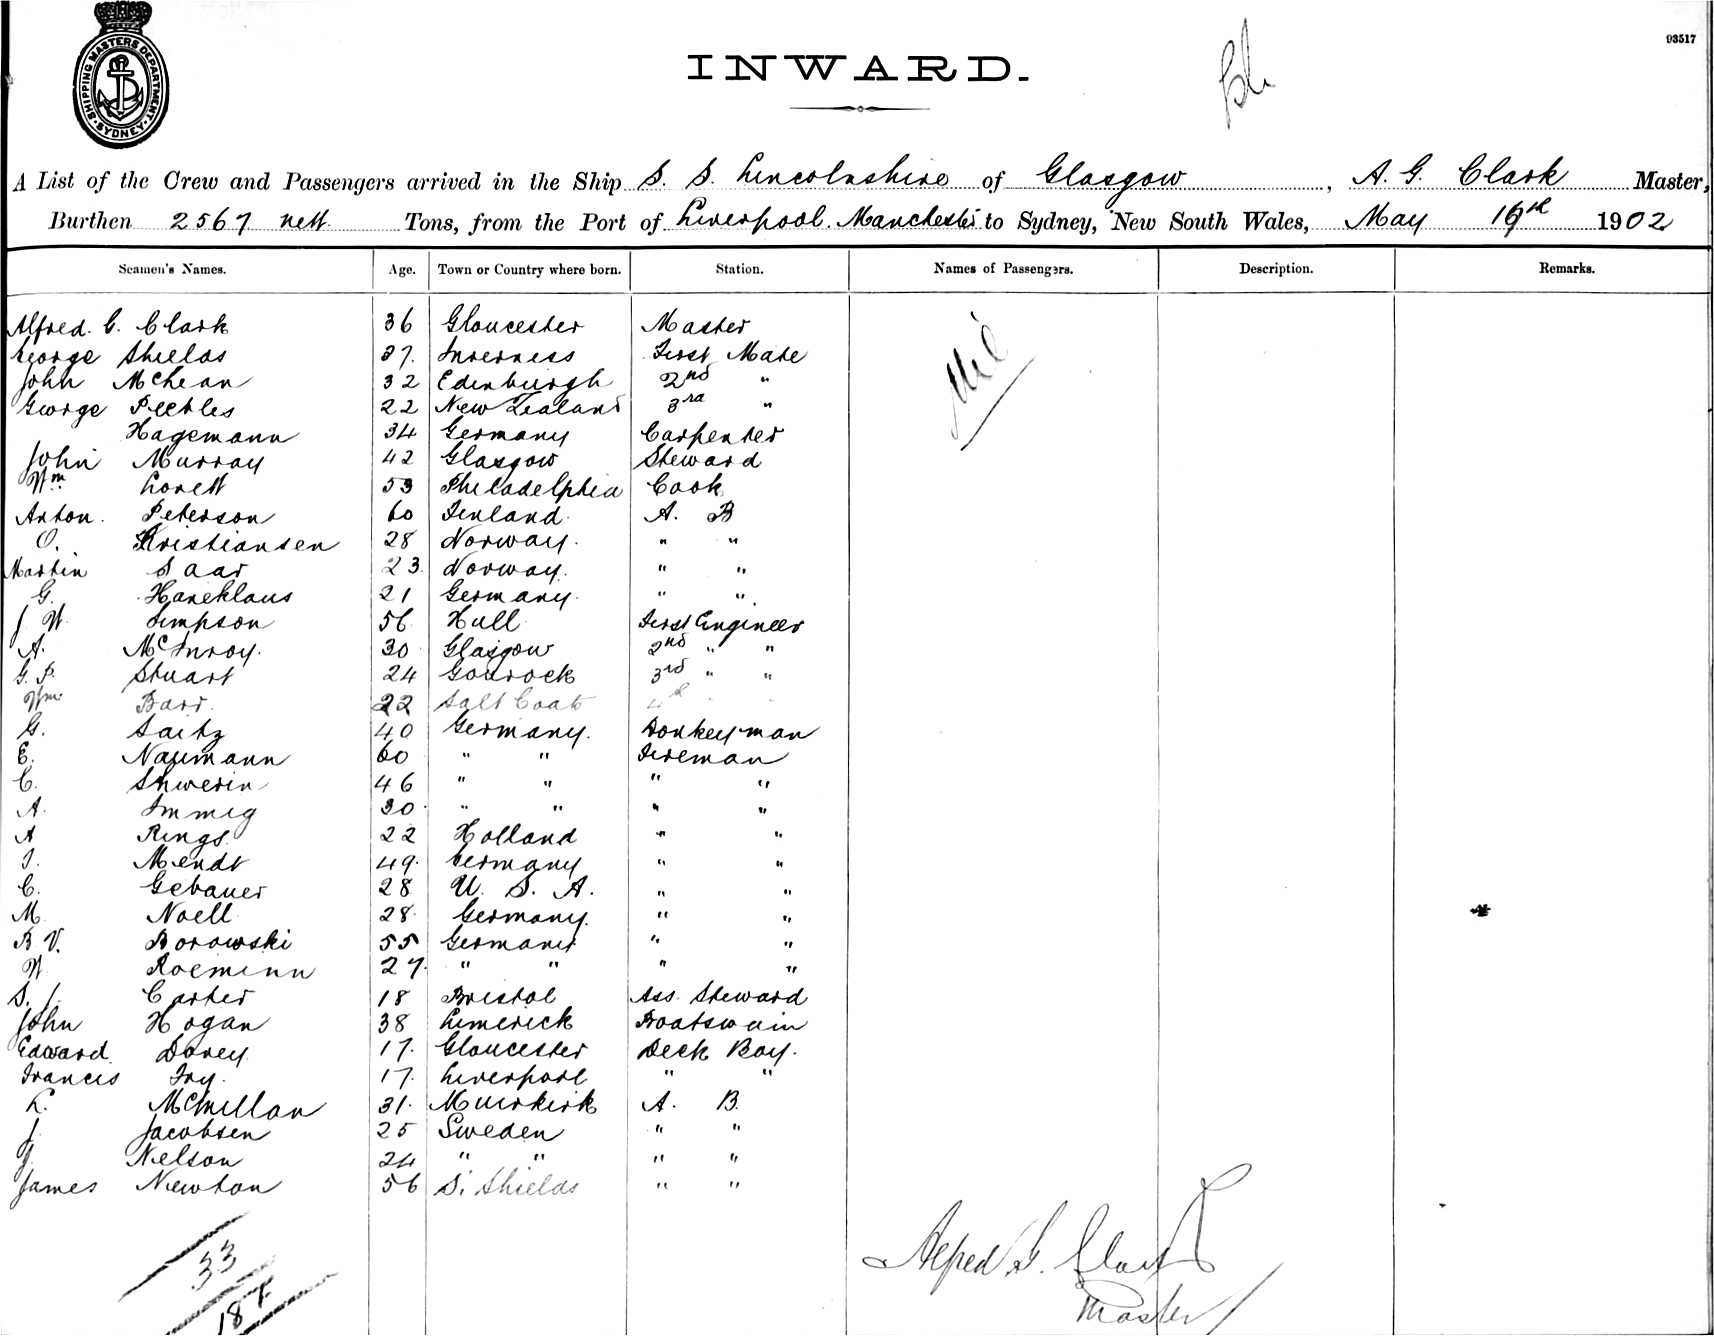 SHIPPING MASTERS DEPARTMENT
SYDNEY
93517
INWARD.
A List of the Crew and Passengers arrived in the Ship S. S. Lincolnshire of Glasgow, A. G. Clark Master,
Burthen 2567 nett Tons, from the Port of Liverpool. Manchester to Sydney, New South Wales, May 19th 1902
Seamen's Names. Age. Town or Country where born. Station. Names of Passengers. Description. Remarks.
Alfred. G. Clark 36 Gloucester Master Nil
George Shields 37. Inverness First Mate
John McLean 32 Edinburgh 2nd "
George Peebles 22 New Zealand 3rd "
Hagemann 34 Germany Carpenter
John Murray 42 Glasgow Steward
Wm Lovett 53 Philadelphia Cook
Anton. Peterson 60 Finland. A. B
O. Kristiansen 28 Norway. " "
Martin Saar 23. Norway. " "
G. Haneklaus 21 Germany. " "
J W. Simpson 56 Hull First Engineer
A. McInroy. 30 Glasgow 2nd " "
G. P. Stuart 24 Gourock 3rd " "
Wm Barr. 22 Salt Coats 4th " "
G. Saitz 40 Germany. Donkeyman
E. Naumann 60 " " Fireman
C. Shwerin 46 " " " "
A. Immig 30. " " " "
A Rings. 22 Holland " "
J. Mendt 49. Germany " "
C. Gebauer 28 U. S. A. " "
M. Noell 28. Germany. " "
B V. Borowski 55 Germany " "
W. Roeminn 27. " " " "
S. J. Carter 18 Bristol Ass. Steward
John Hogan 38 Limerick Boatswain
Edward. Dovey. 17. Gloucester Deck Boy.
Francis Fry. 17. Liverpool " "
K. McMillan 31. Muirkirk A. B.
J. Jacobsen 25 Sweden " "
Nelson 24 " " " "
James Newton 56 S. Shields " "
33
187
Alfred G. Clark
Master